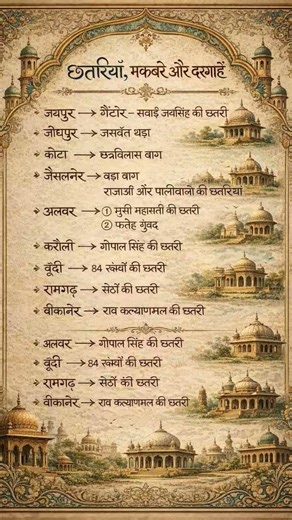 छतरियाँ, मकबरे और दरगाहें
जयपुर → गैटोर – सवाई जयसिंह की छतरी
जोधपुर → जसवंत थड़ा
कोटा → छत्रविलास बाग
जैसलनेर → बड़ा बाग
राजाओं और पालीवालों की छतरियां
अलवर → ① मुसी महासती की छतरी
② फतेह गुंबद
करौली → गोपाल सिंह की छतरी
बूंदी → 84 खंभों की छतरी
रामगढ़ → सेठों की छतरी
बीकानेर → राव कल्याणमल की छतरी
अलवर → गोपाल सिंह की छतरी
बूंदी → 84 खंभों की छतरी
रामगढ़ → सेठों की छतरी
बीकानेर → राव कल्याणमल की छतरी